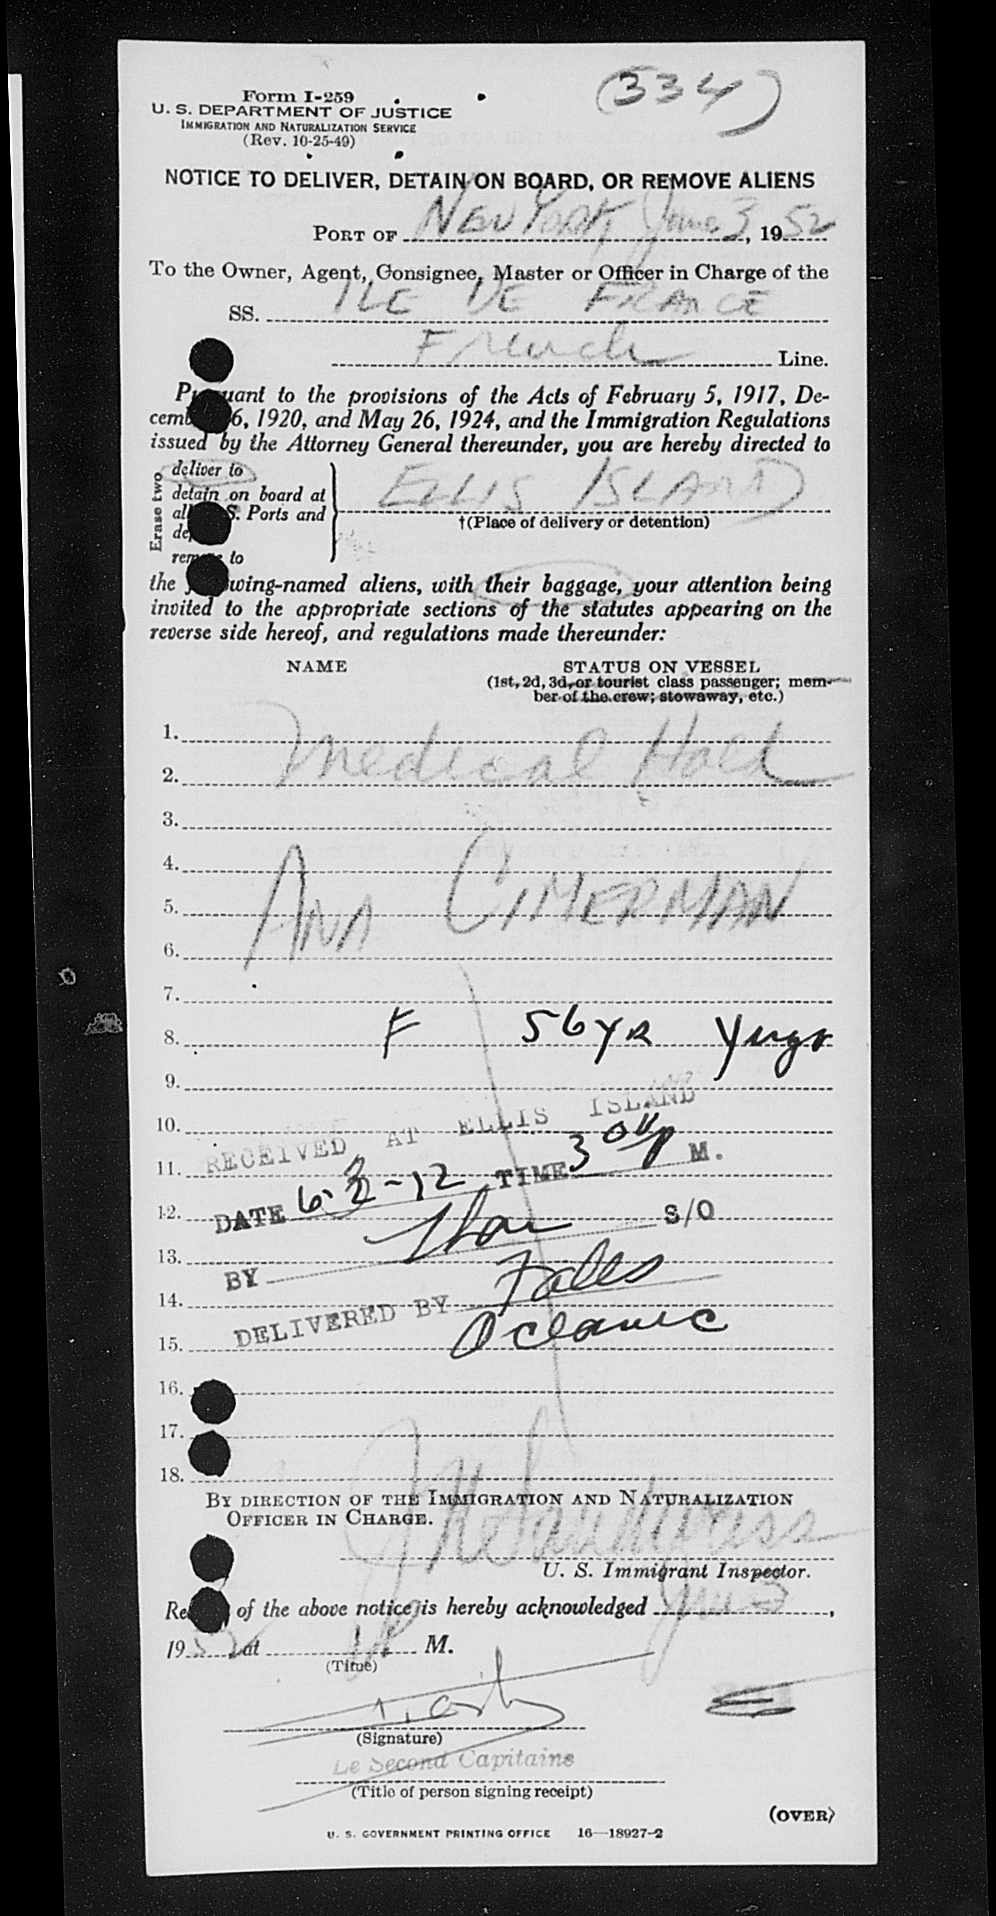 (334)
Form I-259
U. S. DEPARTMENT OF JUSTICE
IMMIGRATION AND NATURALIZATION SERVICE
(Rev. 10-25-49)
NOTICE TO DELIVER, DETAIN ON BOARD, OR REMOVE ALIENS
PORT OF NEW YORK, June 3, 1952
To the Owner, Agent, Consignee, Master or Officer in Charge of the
SS. ILE DE FRANCE
French Line.
Pursuant to the provisions of the Acts of February 5, 1917, De-
cember 26, 1920, and May 26, 1924, and the Immigration Regulations
issued by the Attorney General thereunder, you are hereby directed to
Erase two
deliver to
detain on board at
all U. S. Ports and
remove to
ELLIS ISLAND
†(Place of delivery or detention)
the following-named aliens, with their baggage, your attention being
invited to the appropriate sections of the statutes appearing on the
reverse side hereof, and regulations made thereunder:
NAME STATUS ON VESSEL
(1st, 2d, 3d, or tourist class passenger; mem-
ber of the crew; stowaway, etc.)
1.
2. Medical Hold
3.
4.
5. ANA CIMERMAN
6.
7.
8. F 56 YR Yugo
9.
10.
RECEIVED AT ELLIS ISLAND
11.
DATE 6-3-12 TIME 3 00 P M.
12.
S/O
13.
BY
14.
DELIVERED BY Falls
15. Oceanic
16.
17.
18.
BY DIRECTION OF THE IMMIGRATION AND NATURALIZATION
OFFICER IN CHARGE.
U. S. Immigrant Inspector.
Receipt of the above notice is hereby acknowledged June 3,
1952 at M.
(Time)
(Signature)
Le Second Capitaine
(Title of person signing receipt)
(OVER)
U. S. GOVERNMENT PRINTING OFFICE 16—18927-2